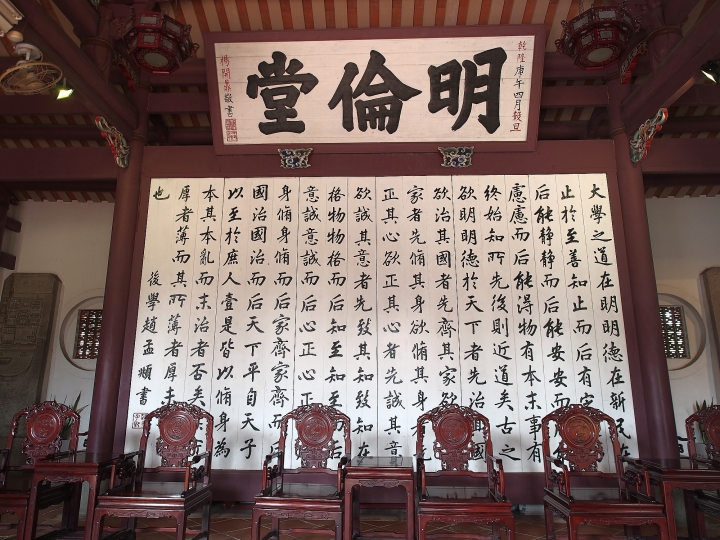 乾隆庚午四月穀旦
明倫堂
楊開鼎敬書
大學之道在明明德在新民在
止於至善知止而后有定
后能靜靜而后能安安而
慮慮而后能得物有本末事有
終始知所先後則近道矣古之
欲明明德於天下者先治其國
欲治其國者先齊其家欲
家者先脩其身欲脩其身者
正其心欲正其心者先誠其意
欲誠其意者先致其知致知在
格物物格而后知至知至而后
意誠意誠而后心正心正
身脩身脩而后家齊家齊而后
國治國治而后天下平自天子
以至於庶人壹是皆以脩身為
本其本亂而末治者否矣其
厚者薄而其所薄者厚未
也
後學趙孟頫書